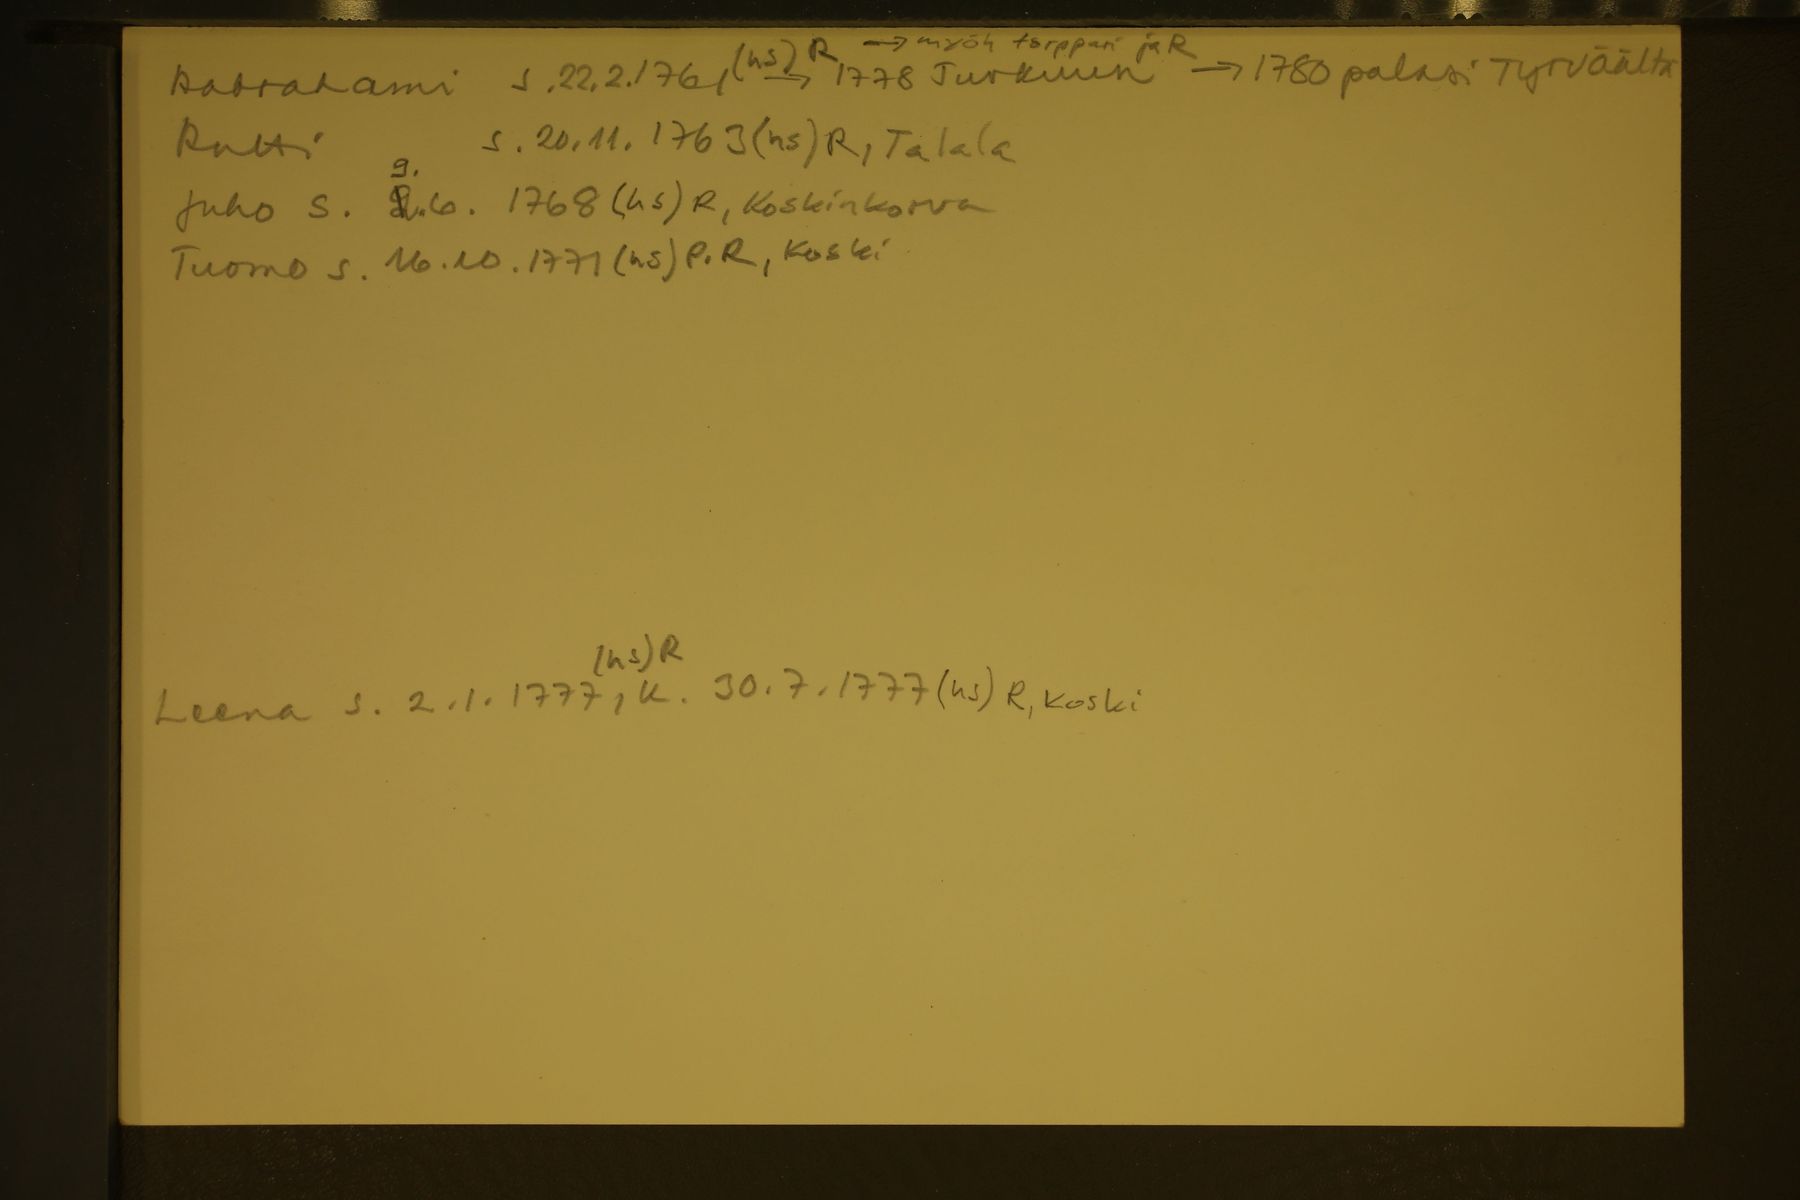 (hs) R → myöh torppari ja R
Aabrahami s. 22.2.1761, → 1778 Turkuun → 1780 palasi Tyrväältä
Antti s. 20.11.1763 (hs) R, Talala
9.
Juho s. 6. 1768 (hs) R, Koskinkorva
Tuomo s. 16.10.1771 (hs) P.R, Koski
(hs) R
Leena s. 2.1.1777, k. 30.7.1777 (hs) R, Koski